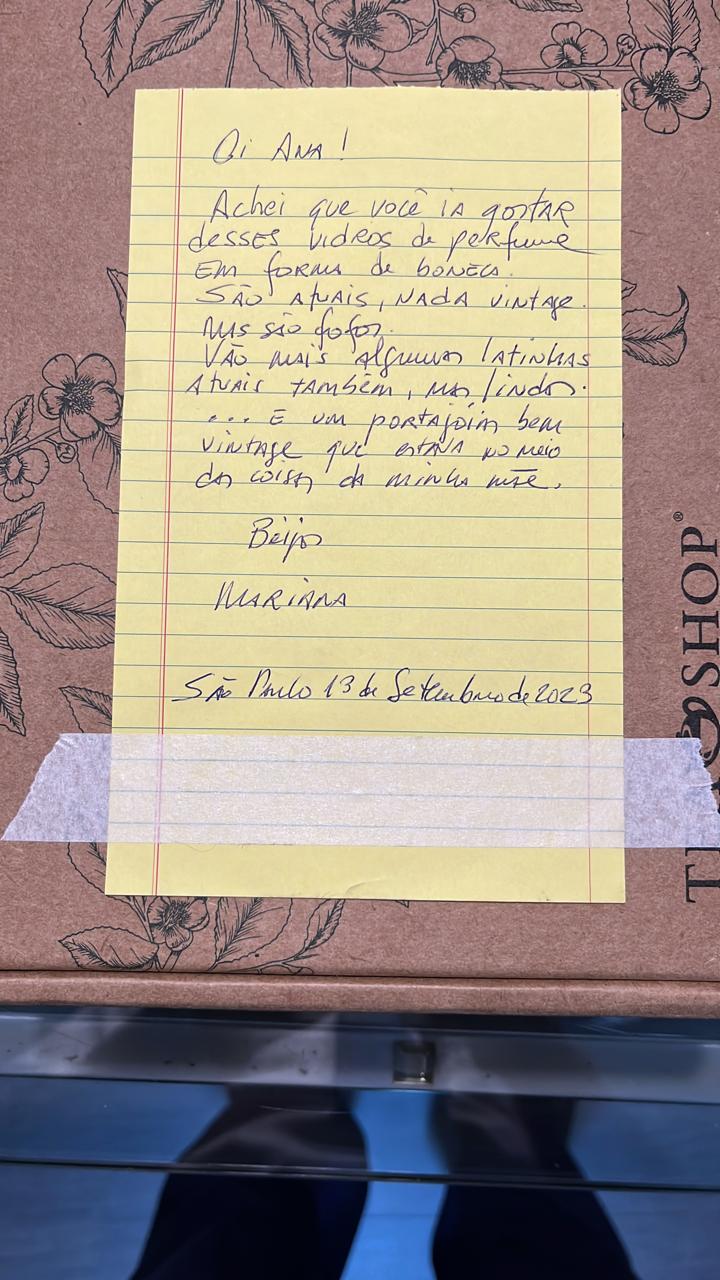 Oi Ana!
Achei que você ia gostar
desses vidros de perfume
em forma de boneca.
São atuais, nada vintage.
Mas são fofos.
Vão mais algumas latinhas
atuais também, mas lindas.
... E um portajoias bem
vintage que estava no meio
das coisas da minha mãe.
Beijos
Mariana
São Paulo 13 de Setembro de 2023
SHOP®